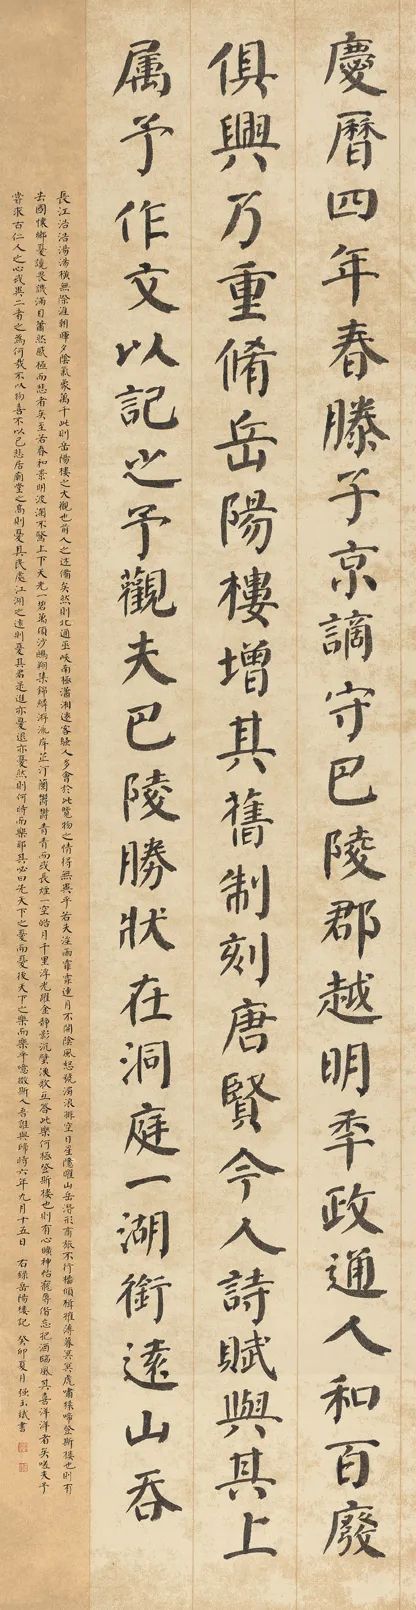 慶曆四年春滕子京謫守巴陵郡越明秊政通人和百廢
俱興乃重脩岳陽樓增其舊制刻唐賢今人詩賦與其上
属予作文以記之予觀夫巴陵勝狀在洞庭一湖銜遠山吞
長江浩浩湯湯橫無際涯朝暉夕陰氣象萬千此則岳陽樓之大觀也前人之述備矣然則北通巫峽南極瀟湘遷客騷人多會於此覽物之情得無異乎若夫淫雨霏霏連月不開陰風怒號濁浪排空日星隱曜山岳潛形商旅不行檣傾楫摧薄暮冥冥虎嘯猿啼登斯樓也則有
去國懷鄉憂讒畏譏滿目蕭然感極而悲者矣至若春和景明波瀾不驚上下天光一碧萬頃沙鷗翔集錦鱗游泳岸芷汀蘭鬱鬱青青而或長煙一空皓月千里浮光躍金靜影沉璧漁歌互答此樂何極登斯樓也則有心曠神怡寵辱偕忘把酒臨風其喜洋洋者矣嗟夫予
嘗求古仁人之心或異二者之為何哉不以物喜不以己悲居廟堂之高則憂其民處江湖之遠則憂其君是進亦憂退亦憂然則何時而樂耶其必曰先天下之憂而憂後天下之樂而樂乎噫微斯人吾誰與歸時六年九月十五日 右錄岳陽樓記 癸卯夏月 書